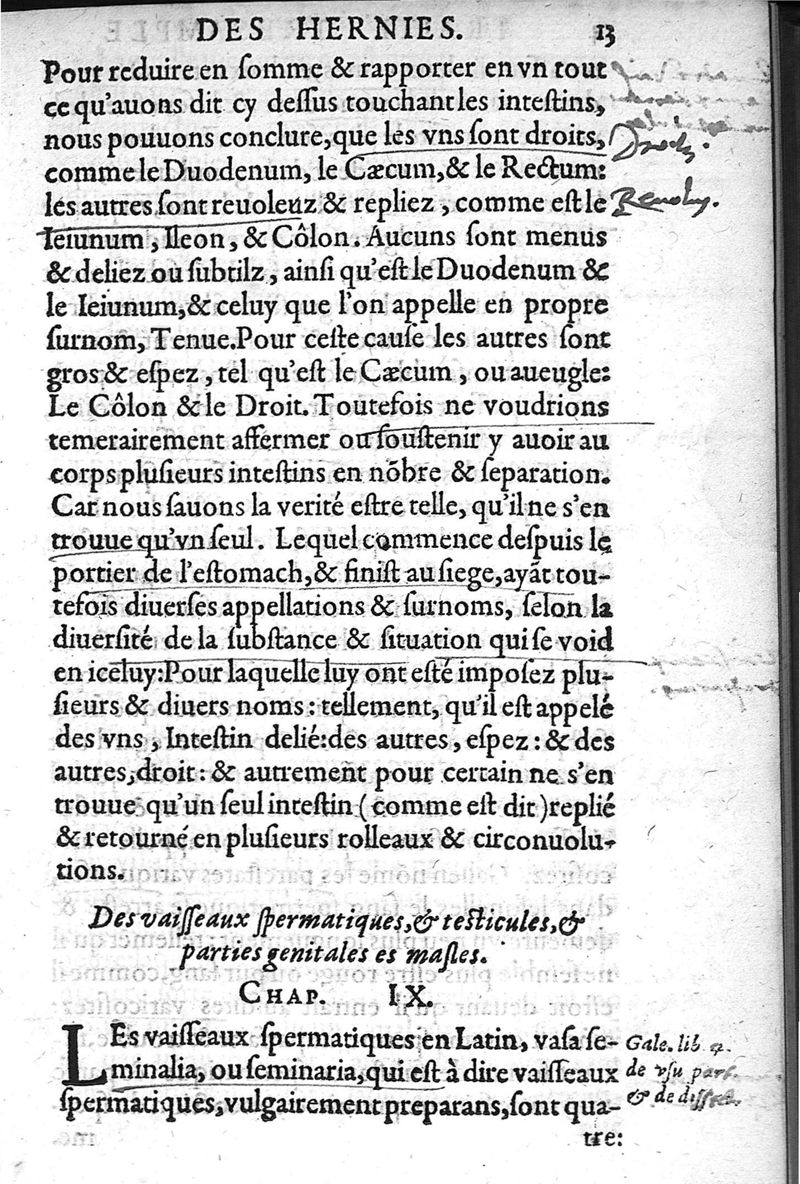 DES HERNIES. 13
Pour reduire en ſomme & rapporter en vn tout
ce qu'auons dit cy deſſus touchant les inteſtins,
nous pouuons conclure, que les vns ſont droits,
comme le Duodenum, le Cæcum, & le Rectum:
les autres ſont reuoleuz & repliez, comme eſt le
Ieiunum, Ileon, & Côlon. Aucuns ſont menus
& deliez ou ſubtilz, ainſi qu'eſt le Duodenum &
le Ieiunum, & celuy que l'on appelle en propre
ſurnom, Tenue. Pour ceſte cauſe les autres ſont
gros & eſpez, tel qu'eſt le Cæcum, ou aueugle:
Le Côlon & le Droit. Toutefois ne voudrions
temerairement affermer ou ſouſtenir y auoir au
corps pluſieurs inteſtins en nõbre & ſeparation.
Car nous ſauons la verité eſtre telle, qu'il ne s'en
trouue qu'vn ſeul. Lequel commence deſpuis le
portier de l'eſtomach, & finiſt au ſiege, ayãt tou-
tefois diuerſes appellations & ſurnoms, ſelon la
diuerſité de la ſubſtance & ſituation qui ſe void
en iceluy: Pour laquelle luy ont eſté impoſez plu-
ſieurs & diuers noms: tellement, qu'il eſt appelé
des vns, Inteſtin delié: des autres, eſpez: & des
autres, droit: & autrement pour certain ne s'en
trouue qu'un ſeul inteſtin (comme eſt dit) replié
& retourné en pluſieurs rolleaux & circonuolu-
tions.
Des vaiſſeaux ſpermatiques, & teſticules, &
parties genitales es maſles.
CHAP. IX.
LEs vaiſſeaux ſpermatiques en Latin, vaſa ſe-
minalia, ou ſeminaria, qui eſt à dire vaiſſeaux
ſpermatiques, vulgairement preparans, ſont qua-
tre:
Gale. lib
de vſu part.
& de diſſect.